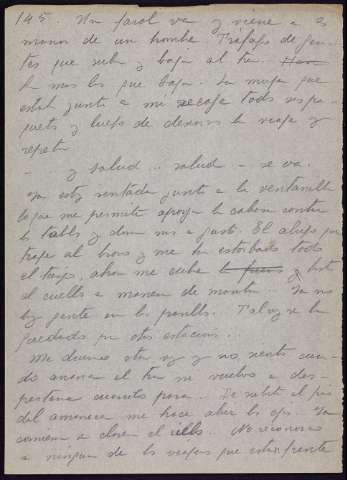 145. Un farol va y viene a
manos de un hombre. Tráfago de gen-
tes que sube y baja al tren.
más los que bajan. La mujer que
está junto a mi recoge todos sus pa-
quetes y luego de desearnos buen viaje y
repetir
- y salud... salud - se va.
Ya estoy sentada junto a la ventanilla
lo que me permite apoyar la cabeza contra
la tabla y dormir a gusto. El abrigo que
traje al brazo y me ha estorbado todo
el tiempo, ahora me cubre y hasta
el cuello a manera de manta. Ya no
hay gente en los pasillos. Tal vez se han
quedado en otras estaciones...
Me duermo otra vez y no siento cuan-
do arranca el tren ni vuelvo a des-
pertarme cuando para. De súbito el frío
del amanecer me hace abrir los ojos. Ya
comienza a clarear el cielo. No reconozco
a ninguno de los viajeros que están frente